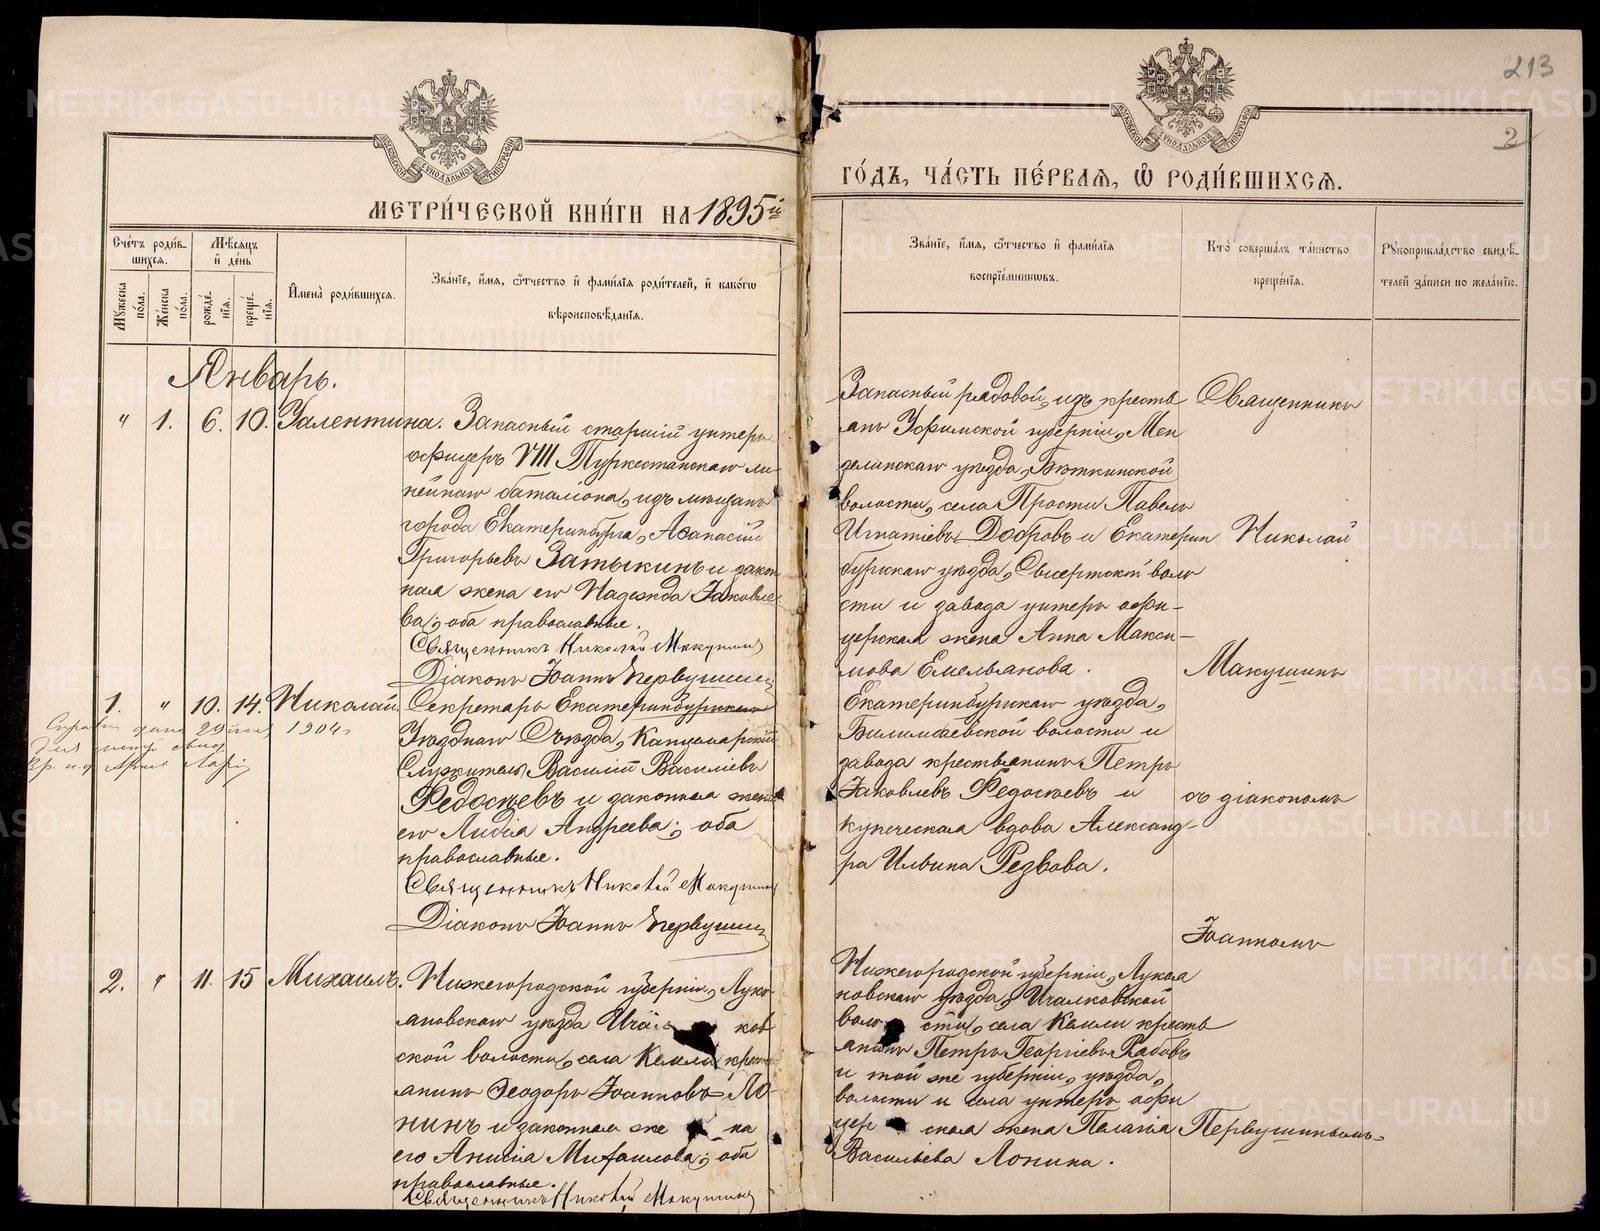 213
2
МОСКОВСКОЙ СѴНОДАЛЬНОЙ ТИПОГРАФІИ
МОСКОВСКОЙ СѴНОДАЛЬНОЙ ТИПОГРАФІИ
МЕТРИ́ЧЕСКОЙ КНИ́ГИ НА 1895й
ГО́ДЪ, ЧА́СТЬ ПЕ́РВАЯ, Ѡ҆ РОДИ́ВШИХСЯ.
Сче́тъ роди́в-
шихся.
Му́жеска по́ла.
Же́нска по́ла.
Мѣ́сяцъ и҆ де́нь
рожде́-
нія.
креще́-
нія.
И҆мена̀ роди́вшихся.
Зва́нїе, и҆́мя, ѻ҆́тчество и҆ фами́лїя роди́телей, и҆ како́гѡ
вѣроисповѣ́данїя.
Зва́нїе, и҆́мя, ѻ҆́тчество и҆ фами́лїя
воспрїе́мникѡвъ.
Кто̀ соверша́лъ та́инство
креще́нїя.
Рꙋкоприкла́дство свидѣ́-
телей за́писи по жела́нїю.
Январь.
" 1. 6. 10. Валентина. Запасный старшій унтеръ
офицеръ VIII Туркестанскаго ли-
нейнаго баталіона, изъ мѣщанъ
города Екатеринбурга, Аѳанасій
Григорьевъ Затыкинъ и закон
ная жена его Надежда Іаковле
ва; оба православные.
Священникъ Николай Макушинъ
Діаконъ Іоаннъ Первушинъ
Запасный рядовой, изъ кресть
янъ Уфимской губерніи, Мен
зелинскаго уѣзда, Бѣткинской
волости, села Прости Павелъ
Игнатіевъ Добровъ и Екатерин
бургскаго уѣзда, Сысертской воло
сти и завода унтеръ офи-
церская жена Анна Макси-
мова Емельянова.
Священникъ
Николай
Макушинъ
1. " 10. 14. Николай. Секретарь Екатеринбургскаго
Уѣзднаго Съѣзда, Канцелярскій
Служитель Василій Василіевъ
Федосѣевъ и законная жена
его Лидія Андреева; оба
православные.
Священникъ Николай Макушинъ
Діаконъ Іоаннъ Первушинъ
дана 29 1904
Екатеринбургскаго уѣзда,
Билимбаевской волости и
завода крестьянинъ Петръ
Іаковлевъ Федосѣевъ и
купеческая вдова Александ-
ра Ильина Резвова.
съ діакономъ
Іоанномъ
2. " 11. 15 Михаилъ. Нижегородской губерніи, Луко
яновскаго уѣзда Ичал ков
ской волости, села Кемли крест
янинъ Ѳеодоръ Іоанновъ Ло-
нинъ и законная же на
его Анисія Михаилова; оба
православные.
Священникъ Николай Макушинъ
Нижегородской губерніи, Лукоя
новскаго уѣзда, Ичалковской
воло сти, села Кемли кресть
янинъ Петръ Георгіевъ Рабовъ
и той же губерніи, уѣзда,
волости и села унтеръ офи
цер ская жена Пелагія
Васильева Лонина.
Первушинымъ